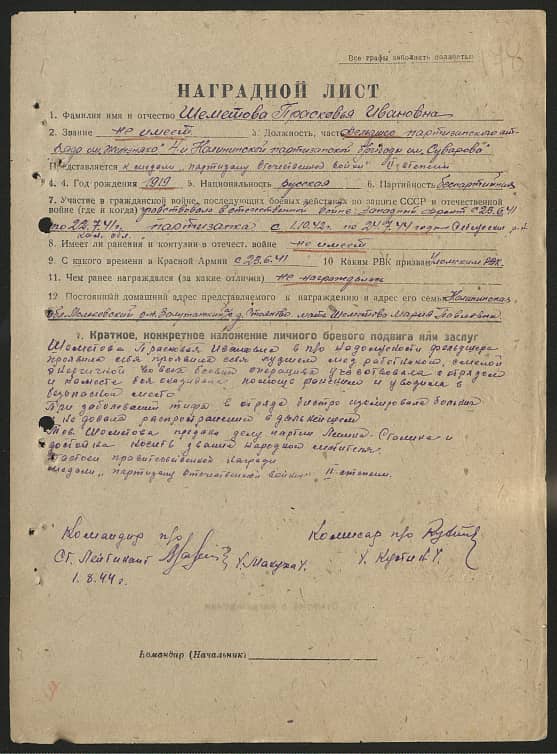 Все графы заполнять полностью
178
НАГРАДНОЙ ЛИСТ
1. Фамилия имя и отчество Шеметова Прасковья Ивановна
2. Звание не имеет 3. Должность, часть фельшер партизанского от-
ряда им. 4й Калининской партизанской бригады им. Суварова"
Представляется к медали „партизану отечественной войны" II степени
4. 4. Год рождения 1919 5. Национальность русская 6. Партийность беспартийная
7. Участие в гражданской войне, последующих боевых действиях по защите СССР и отечественной
войне (где и когда) участвовала в отечественной войне западный фронт с 28.6.41
по 22.7.41г. партизанка с 1.10.42г по 24.7.44 года р-н
кал. обл.
8. Имеет ли ранения и контузии в отечест. войне не имеет
9. С какого времени в Красной Армии с 28.6.41 10 Каким РВК призван РВК.
11. Чем ранее награждался (за какие отличия) не награждалась
12 Постоянный домашний адрес представляемого к награждению и адрес его семьи Калининская
обл. д. мать Шеметова Мария Павловна
1. Краткое, конкретное изложение личного боевого подвига или заслуг
Шеметова Прасковья Ивановна в п/о на должности фельдшера
проявила себя проявила себя лучшим мед работником, смелой
энергичной во всех боевых операциях участвовала с отрядом
и на месте боя оказывала помощь раненым и уводила в
безопасное место
При заболевании тифа в отряде быстро изолировала больных
и не давала распространения в дальнейшем
Тов. Шеметова предана делу партии Ленина-Сталина и
достойна носить звание народной мстителя.
достоен правительственной награды
медали „партизану отечественной войны" II степени.
Командир п/о Комисар п/о
Ст. Лейтинант /Макуха/
1.8.44 г.
Командир (Начальник)